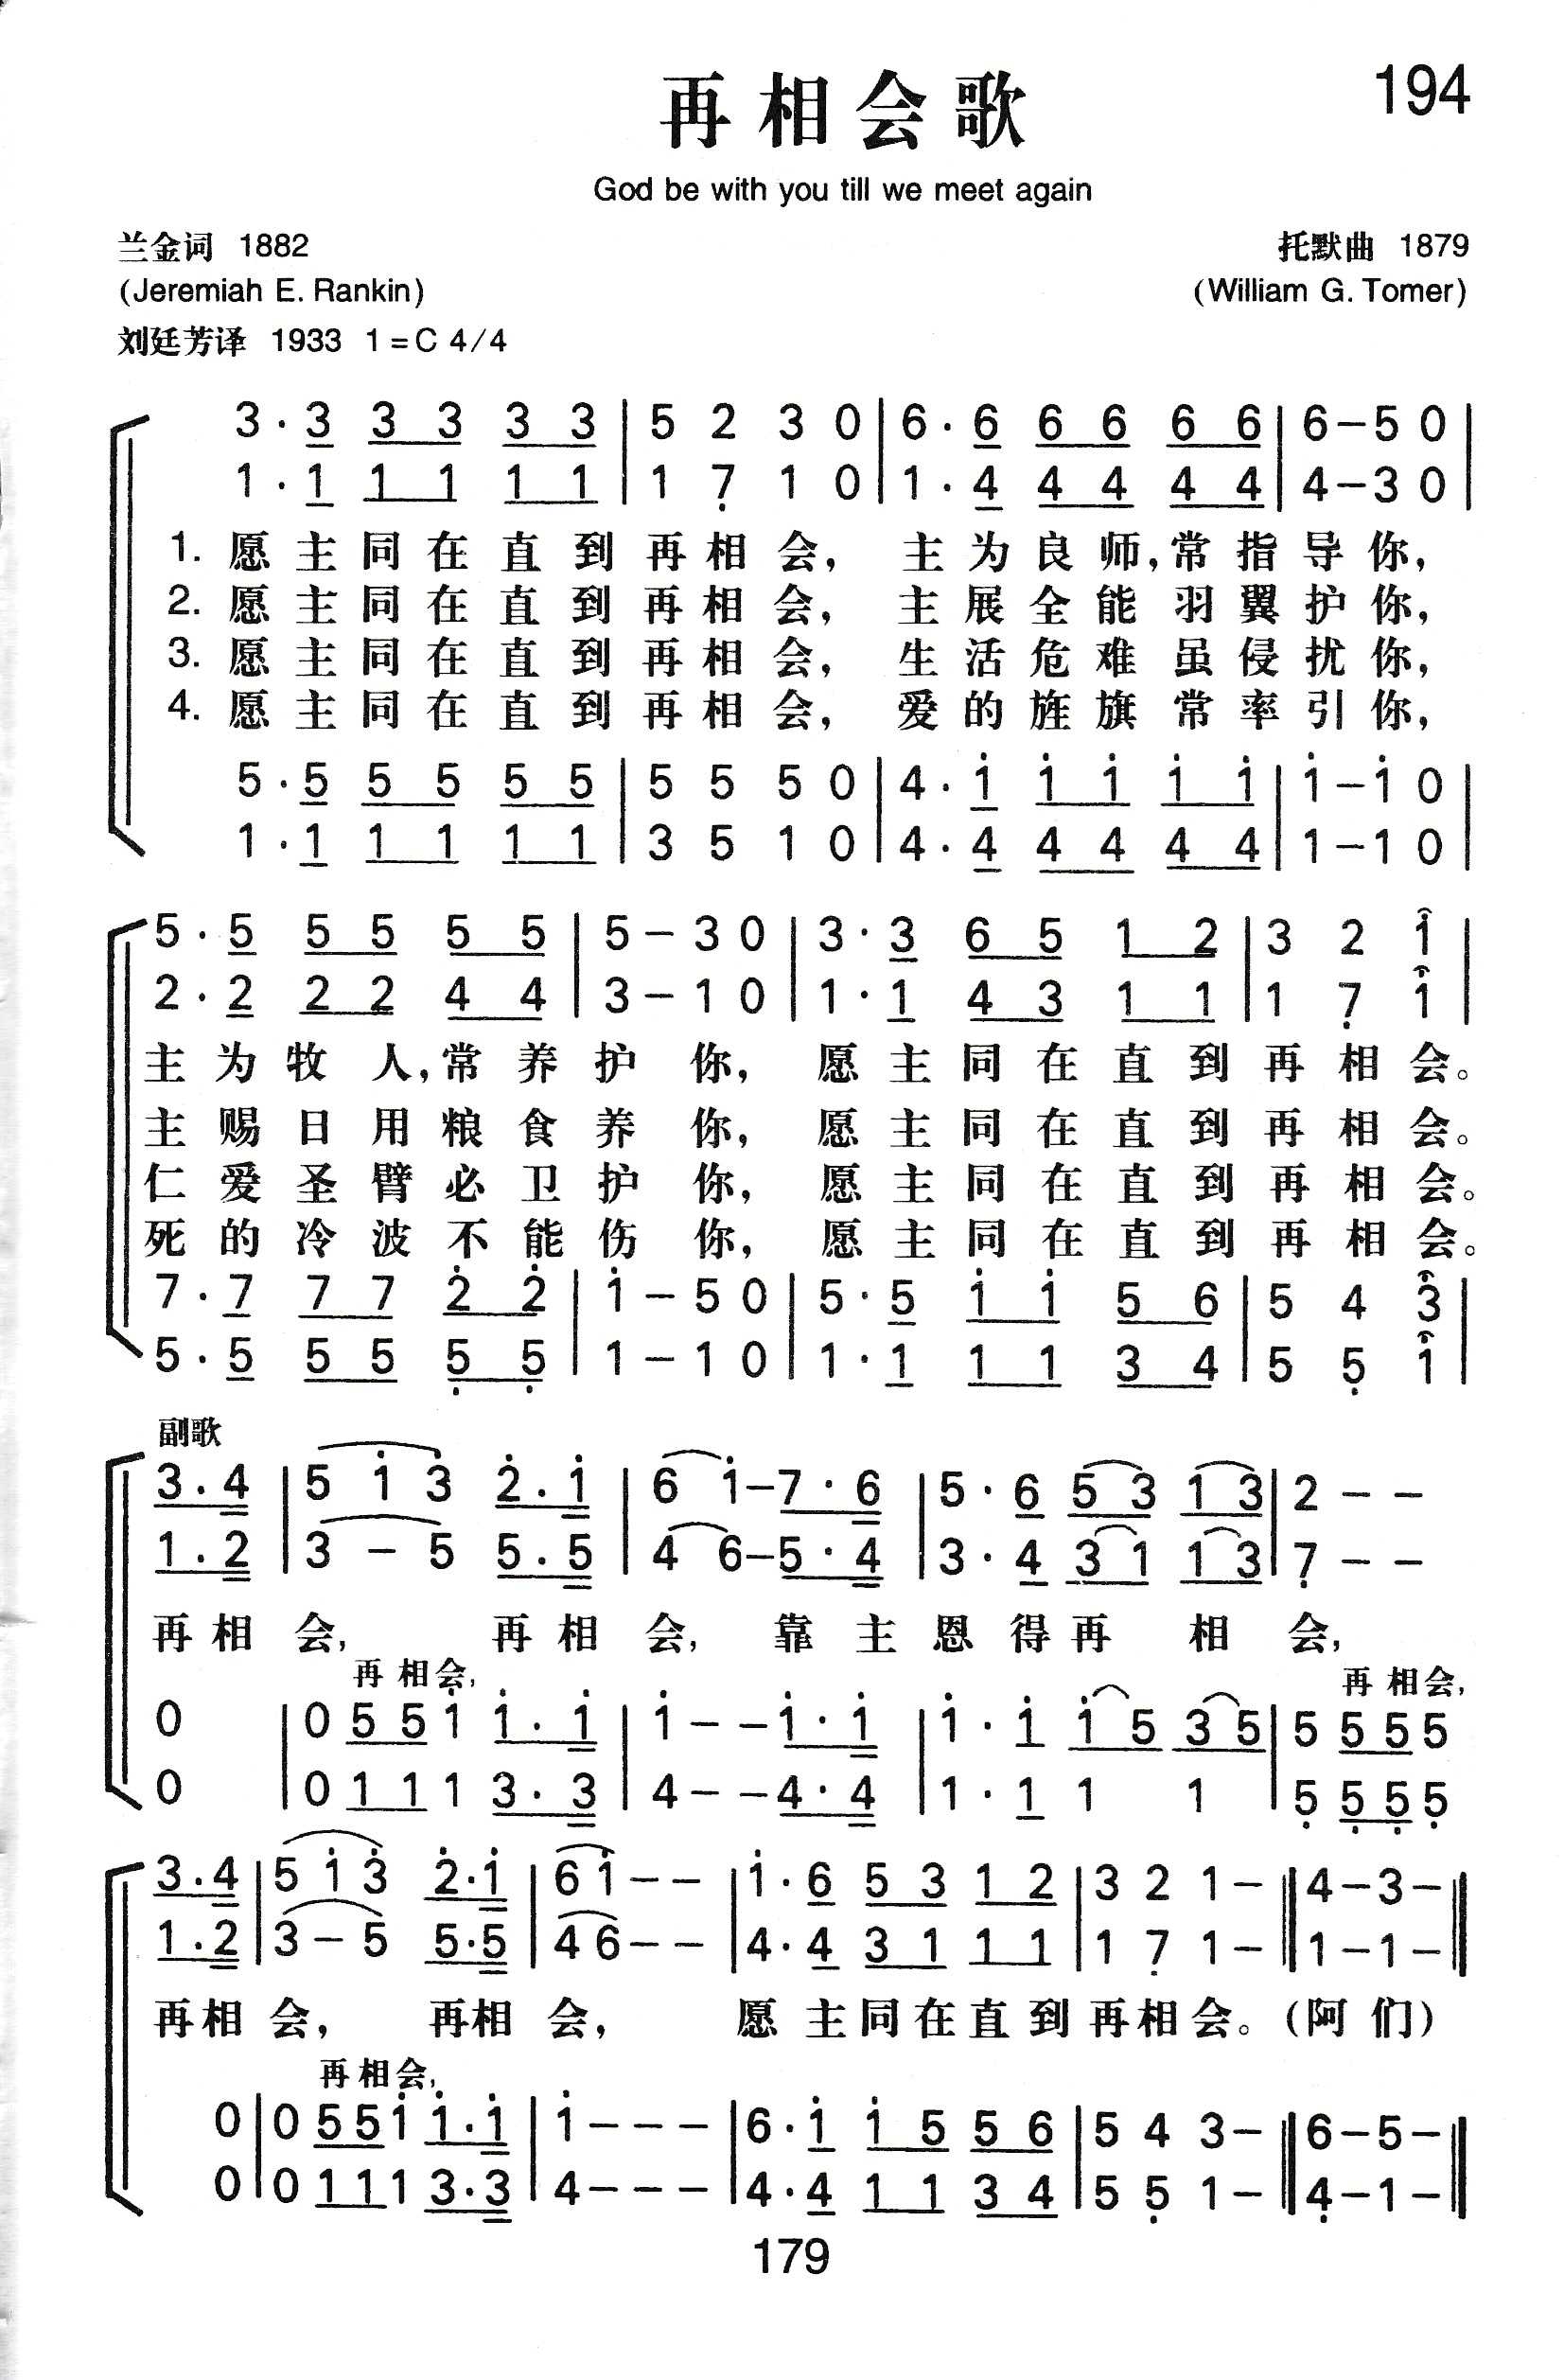 再相会歌 194
God be with you till we meet again
兰金词 1882 托默曲 1879
(Jeremiah E. Rankin) (William G. Tomer)
刘廷芳译 1933 1=C 4/4
3·3 3 3 3 3 | 5 2 3 0 | 6·6 6 6 6 6 | 6-5 0 |
1·1 1 1 1 1 | 1 7 1 0 | 1·4 4 4 4 4 | 4-3 0 |
1. 愿主同在直到再相会，主为良师,常指导你，
2. 愿主同在直到再相会，主展全能羽翼护你，
3. 愿主同在直到再相会，生活危难虽侵扰你，
4. 愿主同在直到再相会，爱的旌旗常率引你，
5·5 5 5 5 5 | 5 5 5 0 | 4·1 1 1 1 1 | 1-1 0 |
1·1 1 1 1 1 | 3 5 1 0 | 4·4 4 4 4 4 | 1-1 0 |
5·5 5 5 5 5 | 5-3 0 | 3·3 6 5 1 2 | 3 2 1 |
2·2 2 2 4 4 | 3-1 0 | 1·1 4 3 1 1 | 1 7 1 |
主为牧人,常养护你，愿主同在直到再相会。
主赐日用粮食养你，愿主同在直到再相会。
仁爱圣臂必卫护你，愿主同在直到再相会。
死的冷波不能伤你，愿主同在直到再相会。
7·7 7 7 2 2 | 1-5 0 | 5·5 1 1 5 6 | 5 4 3 |
5·5 5 5 5 5 | 1-1 0 | 1·1 1 1 3 4 | 5 5 1 |
副歌
3·4 | 5 1 3 2·1 | 6 1-7·6 | 5·6 5 3 1 3 | 2 - -
1·2 | 3 - 5 5·5 | 4 6-5·4 | 3·4 3 1 1 3 | 7 - -
再相会，再相会，靠主恩得再相会，
再相会， 再相会，
0 | 0 5 5 1 1·1 | 1 - - 1·1 | 1·1 1 5 3 5 | 5 5 5 5
0 | 0 1 1 1 3·3 | 4 - - 4·4 | 1·1 1 1 | 5 5 5 5
3·4 | 5 1 3 2·1 | 6 1 - - | 1·6 5 3 1 2 | 3 2 1 - || 4-3- ||
1·2 | 3 - 5 5·5 | 4 6 - - | 4·4 3 1 1 1 | 1 7 1 - || 1-1- ||
再相会，再相会，愿主同在直到再相会。(阿们)
再相会，
0 | 0 5 5 1 1·1 | 1 - - - | 6·1 1 5 5 6 | 5 4 3 - || 6-5- ||
0 | 0 1 1 1 3·3 | 4 - - - | 4·4 1 1 3 4 | 5 5 1 - || 4-1- ||
179